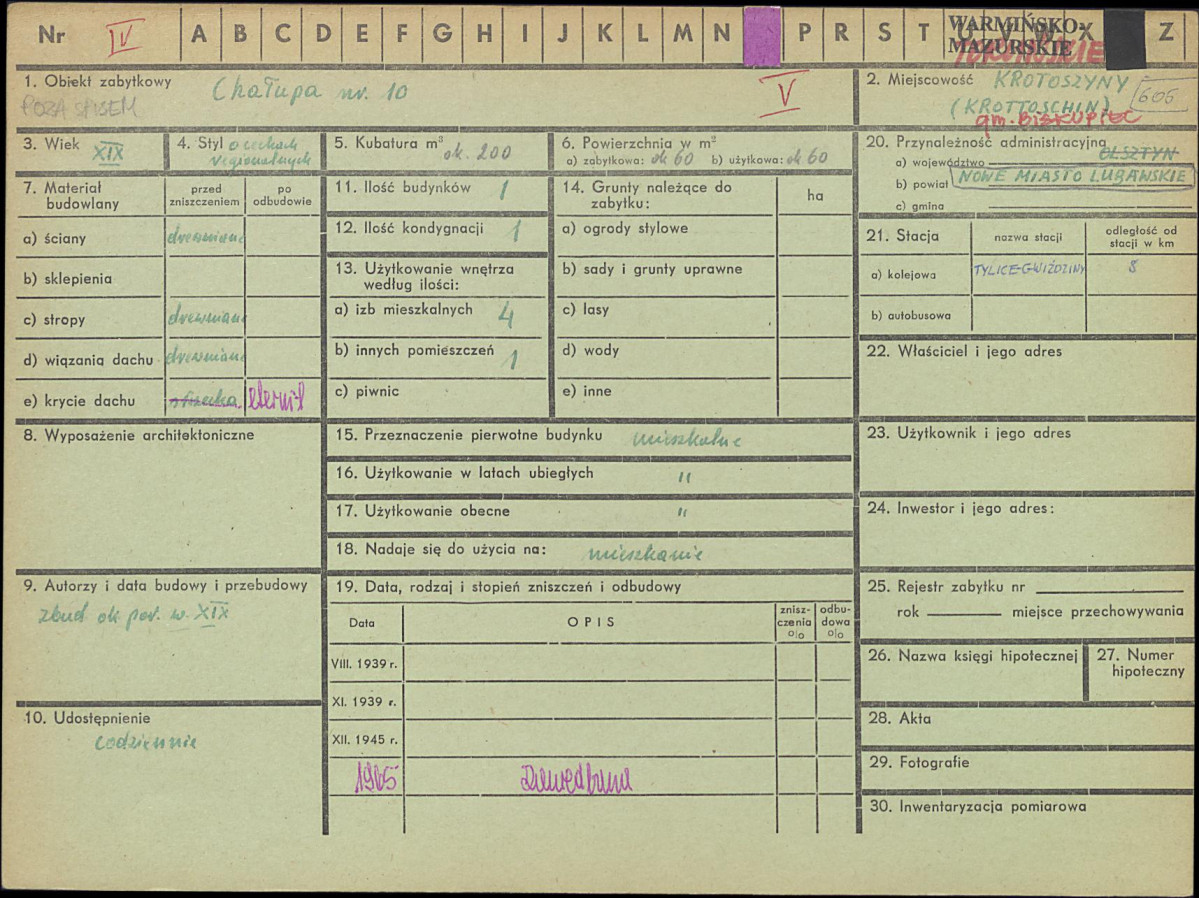 Nr IV A B C D E F G H I J K L M N P R S T U V W X Z
WARMIŃSKO-
MAZURSKIE
1. Obiekt zabytkowy Chałupa nr. 10 V
POZA SPISEM
2. Miejscowość KROTOSZYNY
(KROTTOSCHIN) 605
gm. BISKUPIEC
3. Wiek XIX
4. Styl o cechach
regionalnych
5. Kubatura m³ ok. 200
6. Powierzchnia w m²
a) zabytkowa: ok 60 b) użytkowa: ok 60
20. Przynależność administracyjna
a) województwo OLSZTYN
b) powiat NOWE MIASTO LUBAWSKIE
c) gmina
7. Materiał
budowlany
przed
zniszczeniem
po
odbudowie
a) ściany drewniane
b) sklepienia
c) stropy drewniane
d) wiązania dachu drewniane
e) krycie dachu strzecha eternit
11. Ilość budynków 1
12. Ilość kondygnacji 1
13. Użytkowanie wnętrza
według ilości:
a) izb mieszkalnych 4
b) innych pomieszczeń 1
c) piwnic
14. Grunty należące do
zabytku:
ha
a) ogrody stylowe
b) sady i grunty uprawne
c) lasy
d) wody
e) inne
21. Stacja
nazwa stacji
odległość od
stacji w km
a) kolejowa TYLICE-GWIŹDZINY 8
b) autobusowa
22. Właściciel i jego adres
8. Wyposażenie architektoniczne
15. Przeznaczenie pierwotne budynku mieszkalne
16. Użytkowanie w latach ubiegłych "
17. Użytkowanie obecne "
18. Nadaje się do użycia na: mieszkanie
23. Użytkownik i jego adres
24. Inwestor i jego adres:
9. Autorzy i data budowy i przebudowy
zbud ok poł. w. XIX
19. Data, rodzaj i stopień zniszczeń i odbudowy
Data
OPIS
znisz-
czenia
%
odbu-
dowa
%
VIII. 1939 r.
XI. 1939 r.
XII. 1945 r.
1965
25. Rejestr zabytku nr
rok miejsce przechowywania
26. Nazwa księgi hipotecznej
27. Numer
hipoteczny
10. Udostępnienie
codziennie
28. Akta
29. Fotografie
30. Inwentaryzacja pomiarowa